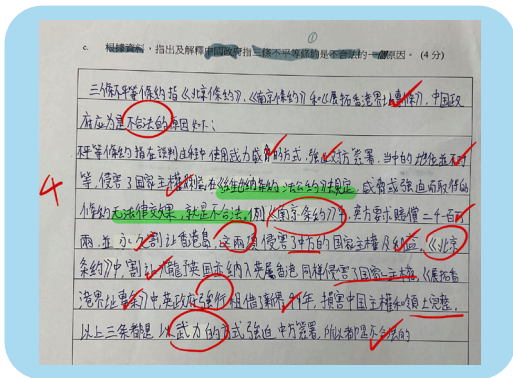 c. 根據資料，指出及解釋中國政府指三條不平等條約是不合法的一個原因。(4分)
①
三條不平等條約指《北京條約》,《南京條約》和《展拓香港界址專條》，中國政
府認為是不合法的原因如下：
不平等條約指在談判過程中使用武力威脅的方式，強迫對方簽署，當中的地位並不對
等，侵害了國家主權，在《維也納條約法公約》規定，威脅或強迫而取得的
4
條約無法律效果，就是不合法。例《南京條約》中，英方要求賠償二千一百
兩，並永久割讓香港島，這兩項侵害中方的國家主權及利益。《北京
條約》中，割讓九龍予英國並納入英屬香港同樣侵害了國家主權，《展拓香
港界址專條》中英政府強行租借了新界99年，損害中國主權和領土完整。
以上三条都是以武力的方式強迫中方簽署，所以都是不合法的